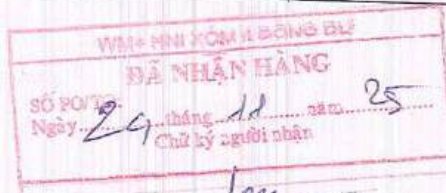 WM+ HNI XÓM 1 ĐÔNG DƯ
ĐÃ NHẬN HÀNG
SỐ PO/TO
Ngày 24 tháng 11 năm 25
Chữ ký người nhận